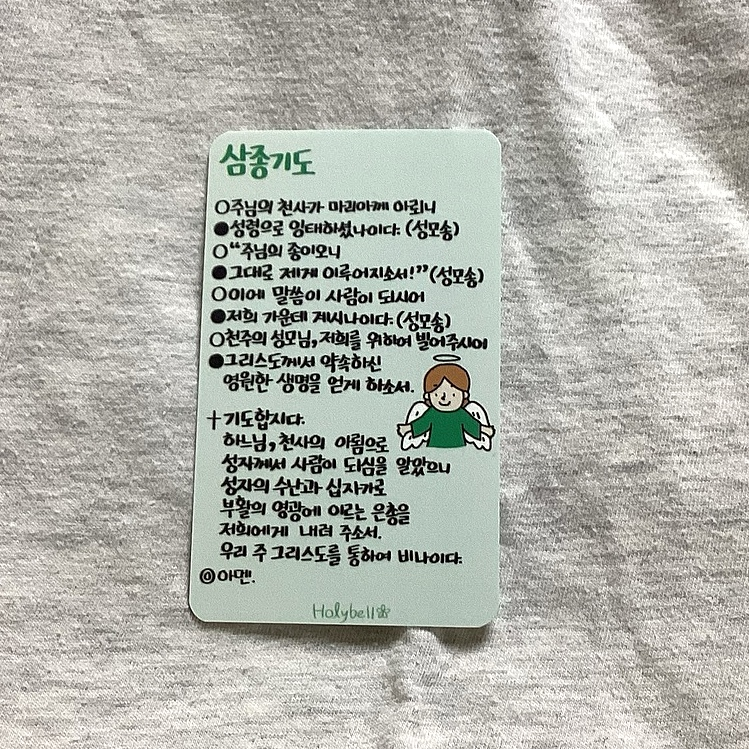 삼종기도
○주님의 천사가 마리아께 아뢰니
●성령으로 잉태하셨나이다. (성모송)
○“주님의 종이오니
●그대로 제게 이루어지소서!”(성모송)
○이에 말씀이 사람이 되시어
●저희 가운데 계시나이다.(성모송)
○천주의 성모님,저희를 위하여 빌어주시어
●그리스도께서 약속하신
영원한 생명을 얻게 하소서.
✝기도합시다.
하느님,천사의 아룀으로
성자께서 사람이 되심을 알았으니
성자의 수난과 십자가로
부활의 영광에 이르는 은총을
저희에게 내려 주소서.
우리 주 그리스도를 통하여 비나이다.
◎아멘.
Holybell